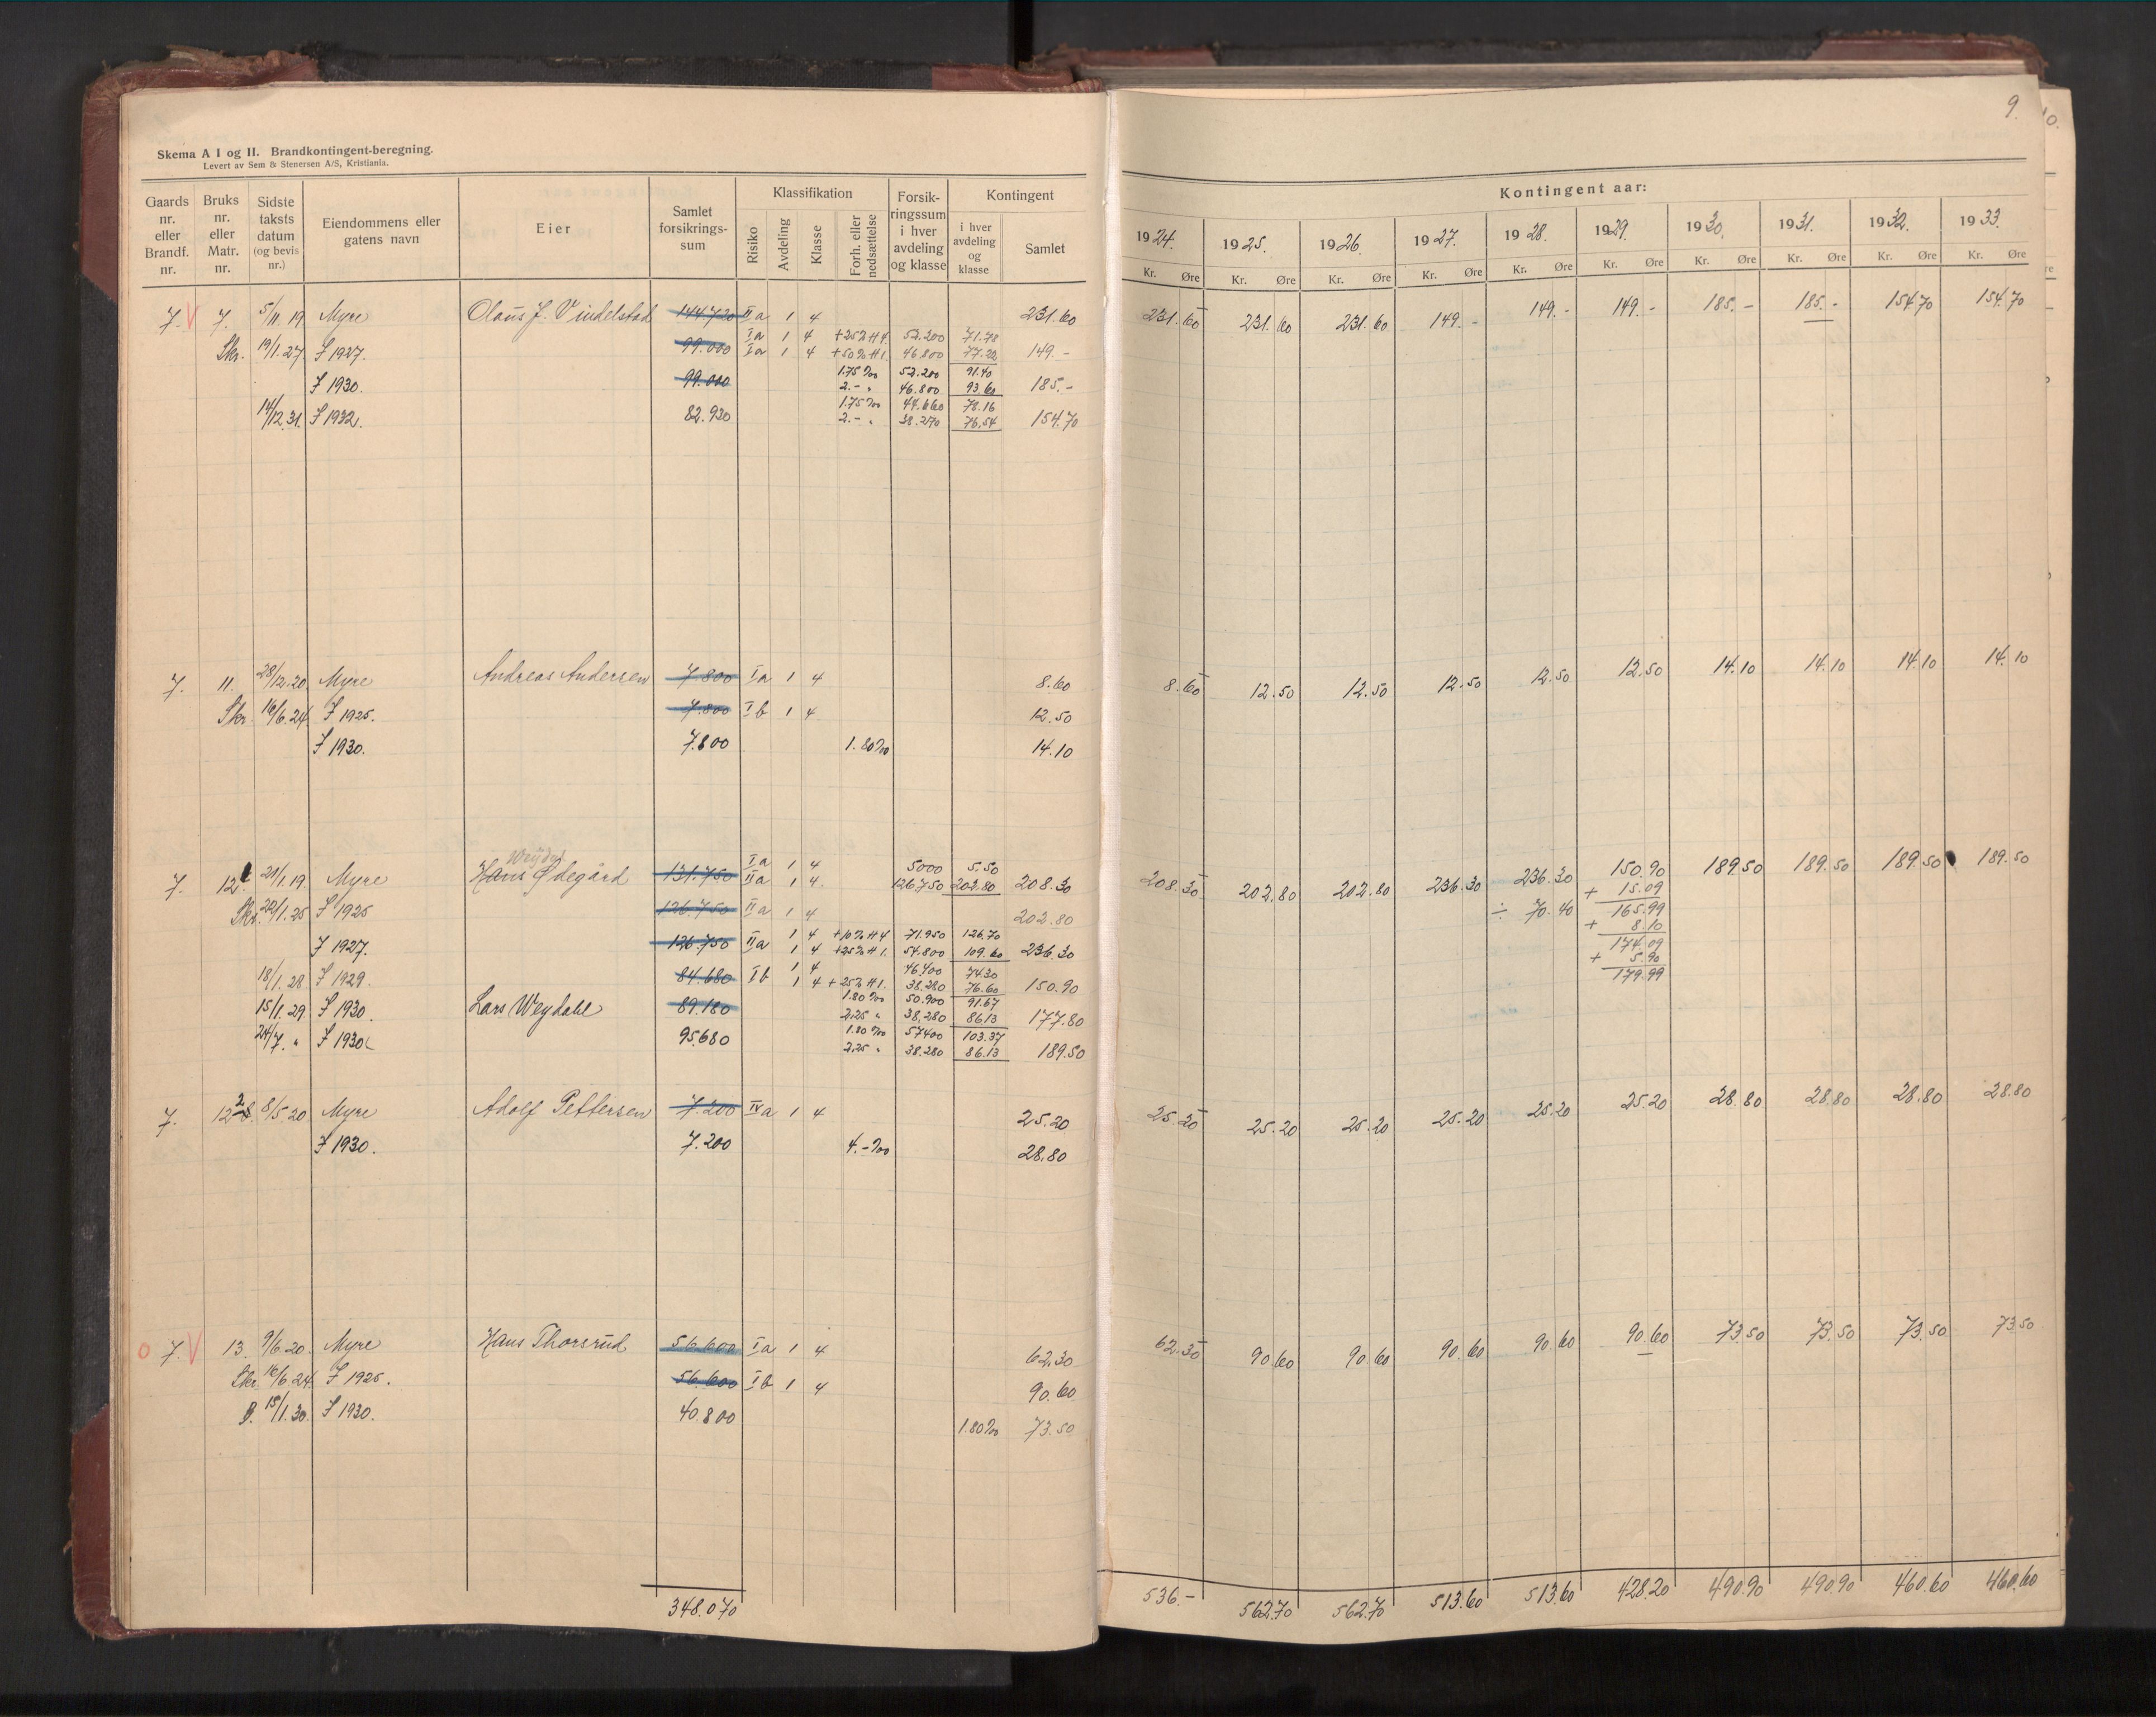 9.
10.
Skema A I og II. Brandkontingent-beregning.
Levert av Sem & Stenersen A/S, Kristiania.
Gaards nr. eller Brandf. nr. | Bruks nr. eller Matr. nr. | Sidste taksts datum (og bevis nr.) | Eiendommens eller gatens navn | Eier | Samlet forsikrings-sum | Klassifikation | Risiko | Avdeling | Klasse | Forh. eller nedsættelse | Forsik-ringssum i hver avdeling og klasse | Kontingent | i hver avdeling og klasse | Samlet
Kontingent aar:
1924. | 1925. | 1926. | 1927. | 1928. | 1929. | 1930. | 1931. | 1932. | 1933.
Kr. Øre | Kr. Øre | Kr. Øre | Kr. Øre | Kr. Øre | Kr. Øre | Kr. Øre | Kr. Øre | Kr. Øre | Kr. Øre
7. V 7. 5/11.19 Myre Olaus J. Vindelstad 144.720 IIa 1 4 231.60 | 231.60 | 231.60 | 231.60 | 149.- | 149.- | 149.- | 185.- | 185.- | 154.70 | 154.70
Ia 1 4 +25% H4 52.200 71.78
Skr. 19/1.27 F 1927. 99.000 Ia 1 4 +50% H1. 46.800 77.22 149.-
1.75 ‰ 52.200 91.40
F 1930. 99.000 2.- " 46.800 93.60 185.-
1.75 ‰ 44.660 78.16
14/12.31. F 1932. 82.930 2.- " 38.270 76.54 154.70
7. 11. 28/12.20 Myre Andreas Andersen 7.800 Ia 1 4 8.60 | 8.60 | 12.50 | 12.50 | 12.50 | 12.50 | 12.50 | 14.10 | 14.10 | 14.10 | 14.10
Skr. 16/6.24 F 1925. 7.800 Ib 1 4 12.50
F 1930. 7.800 1.80 ‰ 14.10
Weydal
Ia 1 4 5000 5.50
7. 12.1 21/1.19. Myre Hans Ødegård 131.750 IIa 1 4. 126.750 202.80 208.30 | 208.30 | 202.80 | 202.80 | 236.30 | 236.30 | 150.90 | 189.50 | 189.50 | 189.50 | 189.50
+ 15.09
Skr. 22/1.25 F 1925 126.750 IIa 1 4 202.80 ÷ 70.40 165.99
+ 8.10
1 4 +10% H4 71.950 126.70
F 1927. 126.750 IIa 1 4 +25% H1. 54.800 109.60 236.30 174.09
+ 5.90
1 4 46.400 74.30 179.99
18/1.28 F 1929. 84.680 Ib 1 4 +25% H1. 38.280 76.60 150.90
1.80 ‰ 50.900 91.67
15/1.29 F 1930. Lars Weydahl 89.180 2.25 " 38.280 86.13 177.80
1.80 ‰ 57400 103.37
24/7. " F 1930 95.680 2.25 " 38.280 86.13 189.50
7. 12 2 8/5.20 Myre Adolf Pettersen 7.200 IVa 1 4 25.20 | 25.20 | 25.20 | 25.20 | 25.20 | 25.20 | 25.20 | 28.80 | 28.80 | 28.80 | 28.80
F 1930. 7.200 4.- ‰ 28.80
0 7. V 13. 9/6.20. Myre Hans Thorsrud 56.600 Ia 1 4 62.30 | 62.30 | 90.60 | 90.60 | 90.60 | 90.60 | 90.60 | 73.50 | 73.50 | 73.50 | 73.50
Skr. 16/6.24 F 1925. 56.600 Ib 1 4 90.60
B. 15/1.30. F 1930. 40.800 1.80‰ 73.50
348.070 | 536.- | 562.70 | 562.70 | 513.60 | 513.60 | 428.20 | 490.90 | 490.90 | 460.60 | 460.60